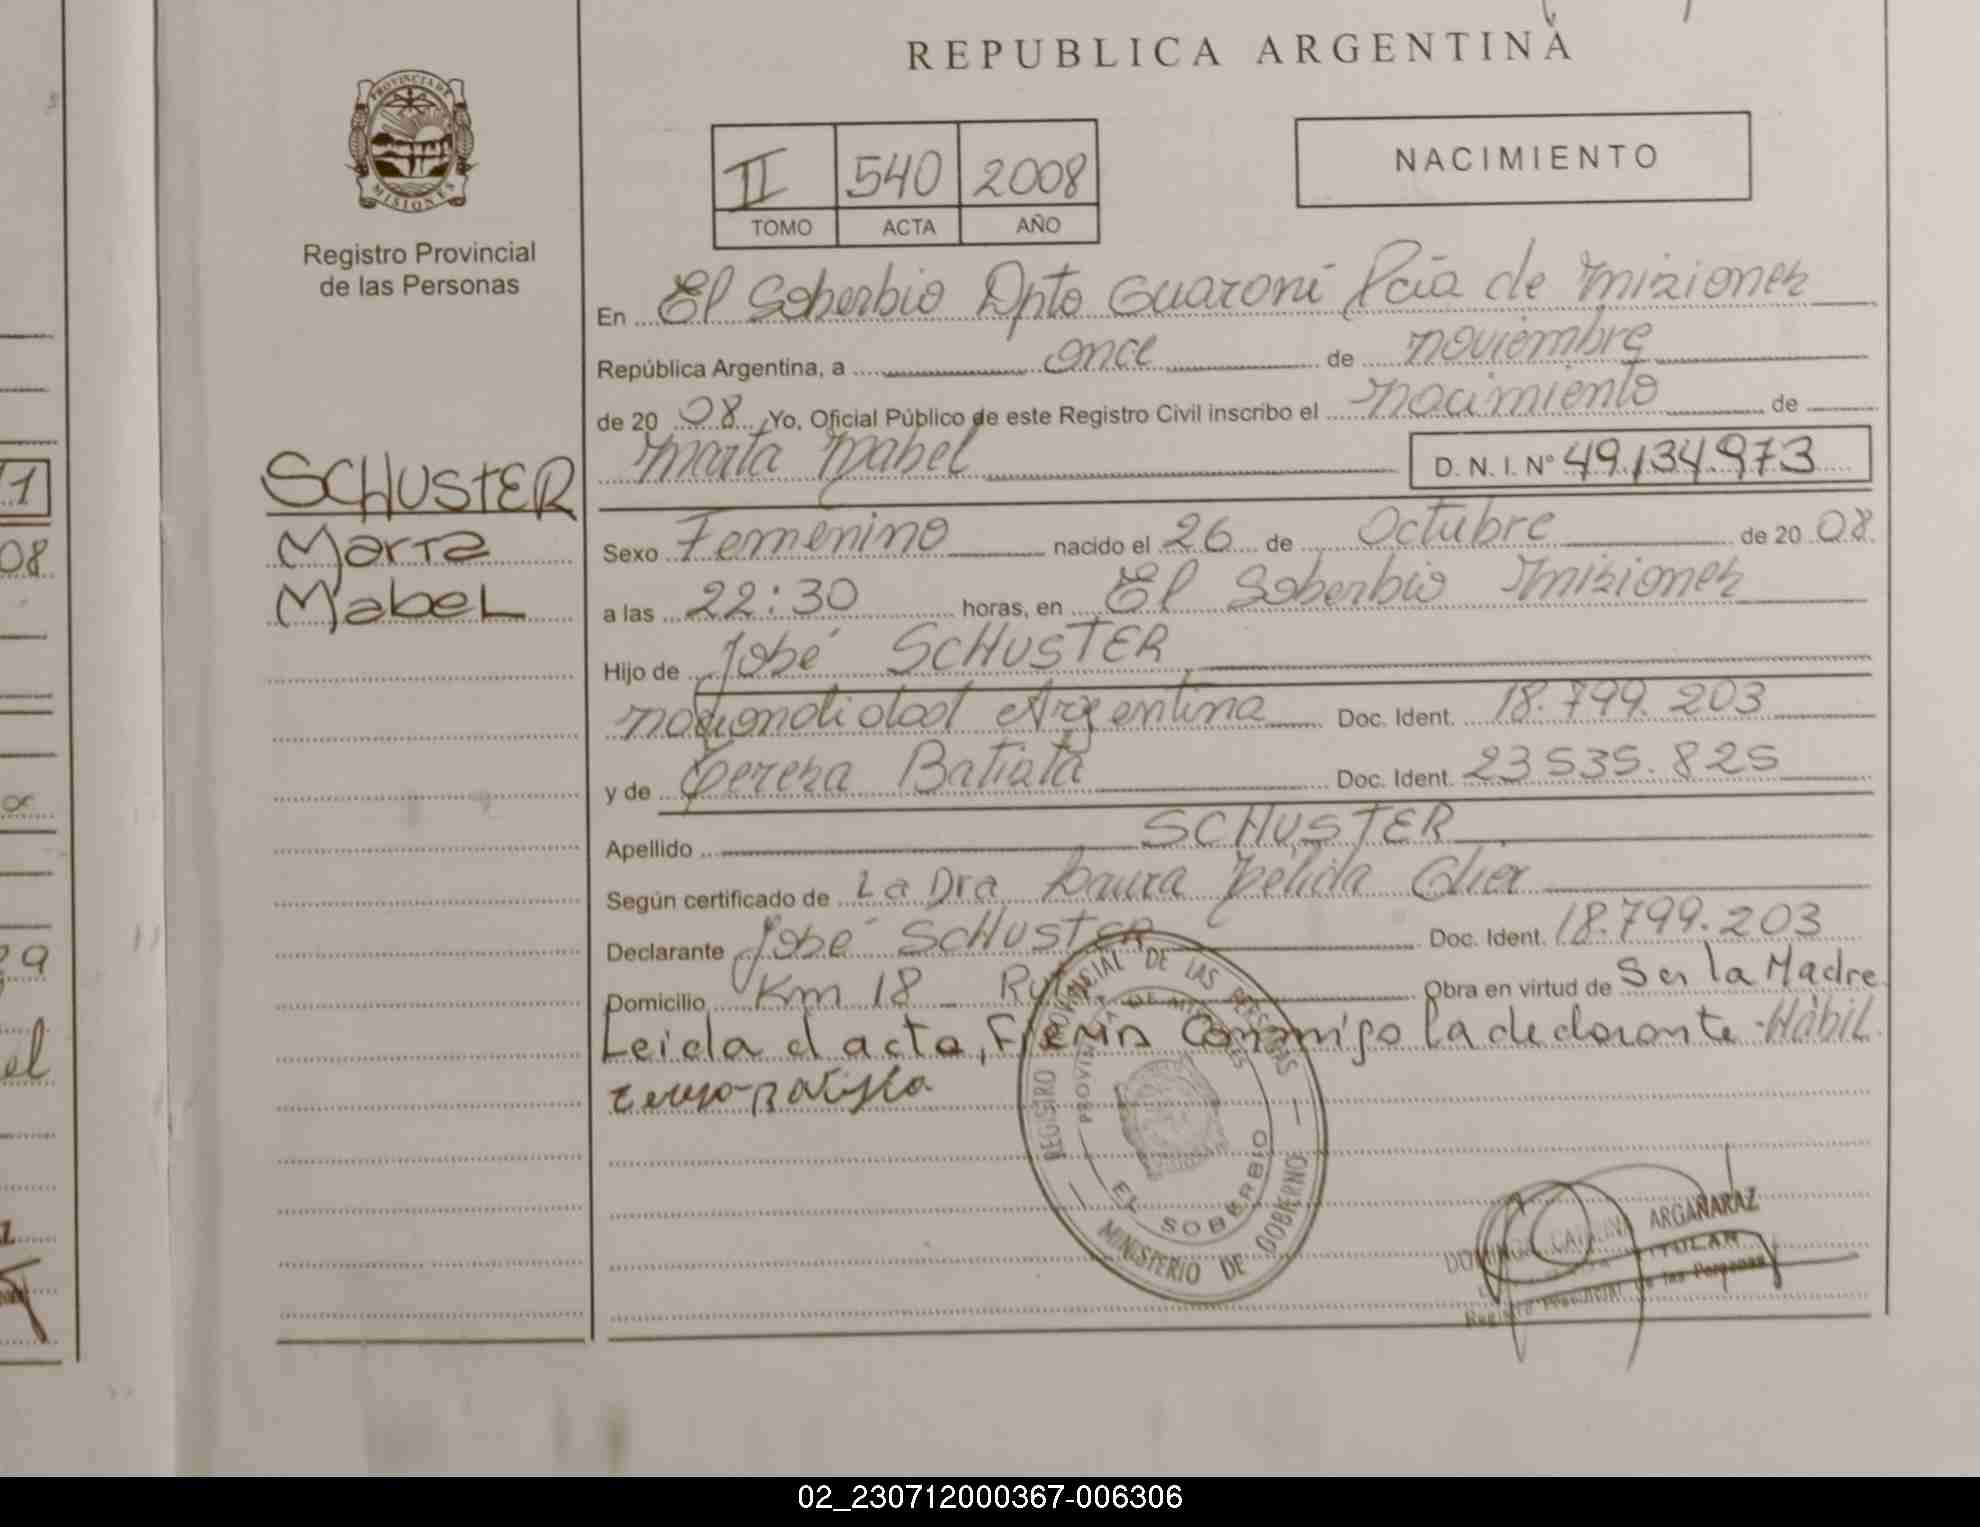 REPUBLICA ARGENTINA
PROVINCIA DE MISIONES
Registro Provincial
de las Personas
II 540 2008
TOMO ACTA AÑO
NACIMIENTO
En El Soberbio Dpto Guaraní Pcia de Misiones
República Argentina, a once de noviembre
de 20 08 Yo, Oficial Público de este Registro Civil inscribo el nacimiento de
Marta Mabel D. N. I. Nº 49.134.973
SCHUSTER
Marta
Mabel
Sexo Femenino nacido el 26 de Octubre de 20 08
a las 22:30 horas, en El Soberbio Misiones
Hijo de José SCHUSTER
nacionalidad Argentina Doc. Ident. 18.799.203
y de Teresa Batista Doc. Ident. 23 535.825
Apellido SCHUSTER
Según certificado de La Dra Laura Nélida
Declarante José SCHUSTER Doc. Ident. 18.799.203
Domicilio Km 18 - Ruta Obra en virtud de Ser la Madre
Leida el acta, Firma Conmigo la declarante Hábil.
REGISTRO PROVINCIAL DE LAS PERSONAS
PROVINCIA DE MISIONES
EL SOBERBIO
MINISTERIO DE GOBIERNO
ARGAÑARAZ
TITULAR
Registro Provincial de las Personas
1
08
29
el
02_230712000367-006306